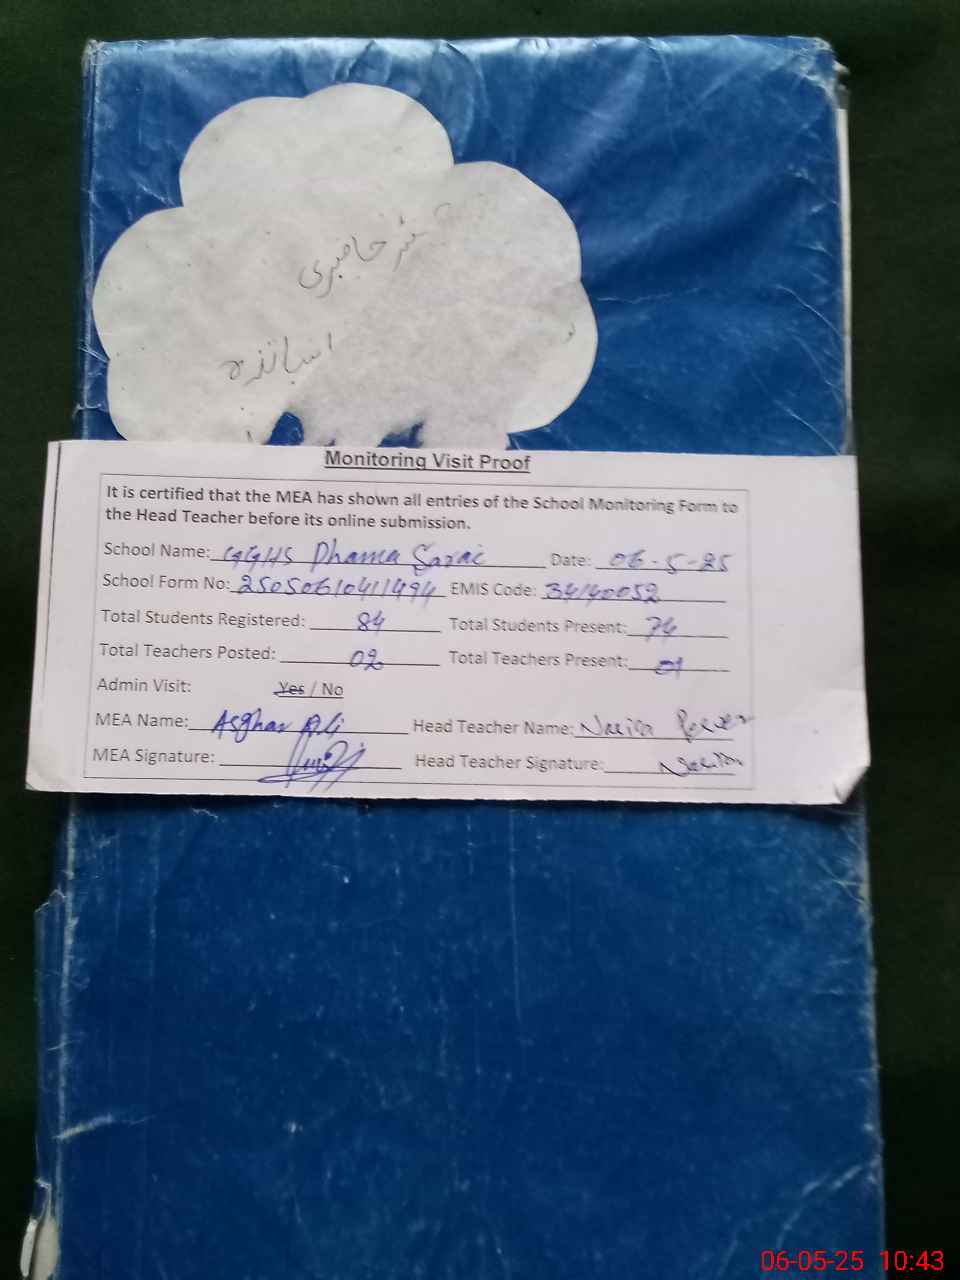 حاضری
اساتذہ
Monitoring Visit Proof
It is certified that the MEA has shown all entries of the School Monitoring Form to
the Head Teacher before its online submission.
School Name: GGHS Dhama Sarai Date: 06-5-25
School Form No: 2505061041494 EMIS Code: 34140052
Total Students Registered: 84 Total Students Present: 74
Total Teachers Posted: 02 Total Teachers Present: 01
Admin Visit: Yes / No
MEA Name: Asghar Ali Head Teacher Name:
MEA Signature: Head Teacher Signature:
06-05-25 10:43